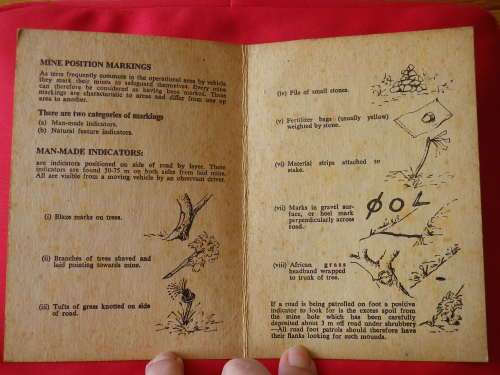 MINE POSITION MARKINGS
As terrs frequently commute in the operational area by vehicle
they mark their mines to safeguard themselves. Every mine
can therefore be considered as having been marked. These
markings are characteristic to areas and differ from one op
area to another.
There are two categories of markings
(a) Man-made indicators.
(b) Natural feature indicators.
MAN-MADE INDICATORS:
are indicators positioned on side of road by layer. These
indicators are found 50-75 m on both sides from laid mine.
All are visible from a moving vehicle by an observant driver.
(i) Blaze marks on trees.
(ii) Branches of trees shaved and
laid pointing towards mine.
(iii) Tufts of grass knotted on side
of road.
(iv) Pile of small stones.
(v) Fertilizer bags (usually yellow)
weighted by stone.
(vi) Material strips attached to
stake.
(vii) Marks in gravel sur-
face, or heel mark
perpendicularly across
road.
ϕ O L
(viii) African grass
headband wrapped
to trunk of tree.
If a road is being patrolled on foot a positive
indicator to look for is the excess spoil from
the mine hole which has been carefully
deposited about 3 m off road under shrubbery
—All road foot patrols should therefore have
their flanks looking for such mounds.